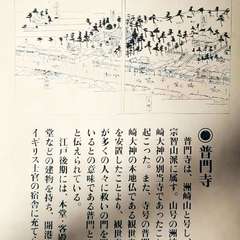 ●普門寺
普門寺は、洲崎山と号し、
宗智山派に属す。山号の洲
崎大神の別当寺であったこ
起こった。また、寺号の普
崎大神の本地仏である観世
を安置したことよい、観世
が多くの人々に救いの門を
いるとの意味である普門と
と伝えられている。
江戸後期には、本堂、客殿
堂などの建物を持ち、開港
イギリス士官の宿舎に充て